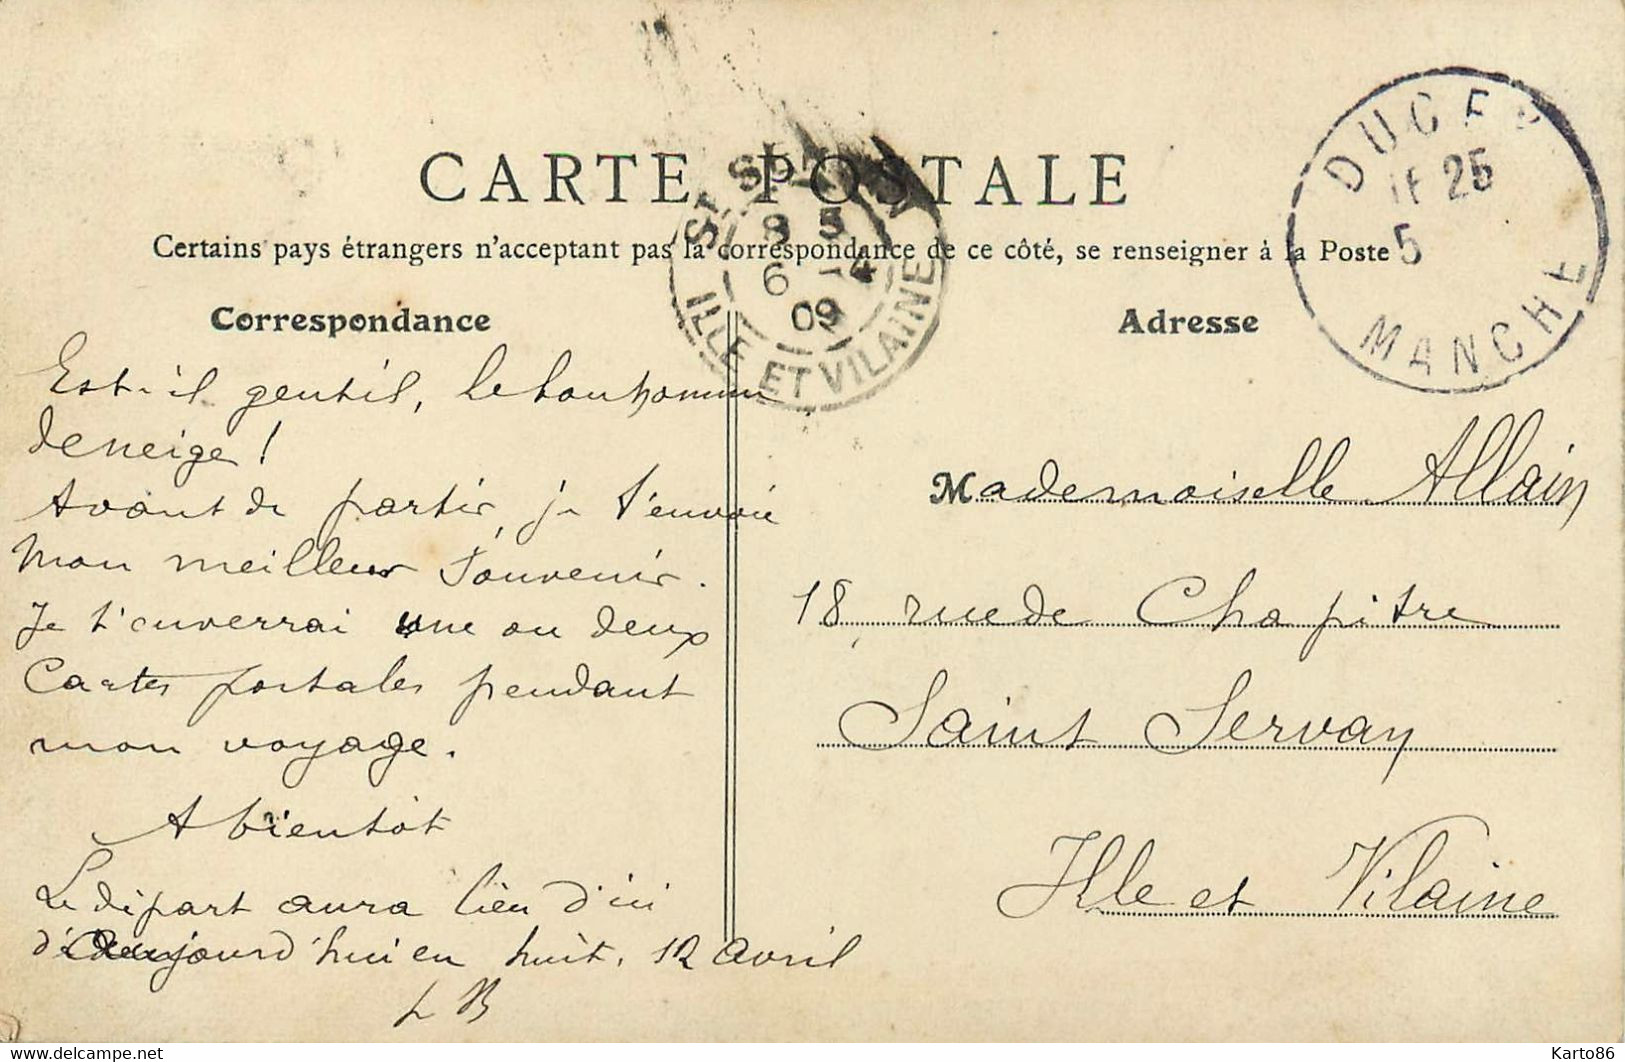 CARTE POSTALE
Certains pays étrangers n'acceptant pas la correspondance de ce côté, se renseigner à la Poste
ST SERVAN
8 5
6 - 4
09
ILLE ET VILAINE
DUCEY
25
5
MANCHE
Correspondance
Est-il gentil, le bonhomme
de neige !
Avant de partir, je t'envoie
mon meilleur souvenir.
Je t'enverrai une ou deux
Cartes postales pendant
mon voyage.
A bientôt
Le départ aura lieu d'ici
d'aujourd'hui en huit. 12 avril
L B
Adresse
Mademoiselle Allain
18, rue de Chapitre
Saint Servan
Ille et Vilaine
delcampe.net
Karto86